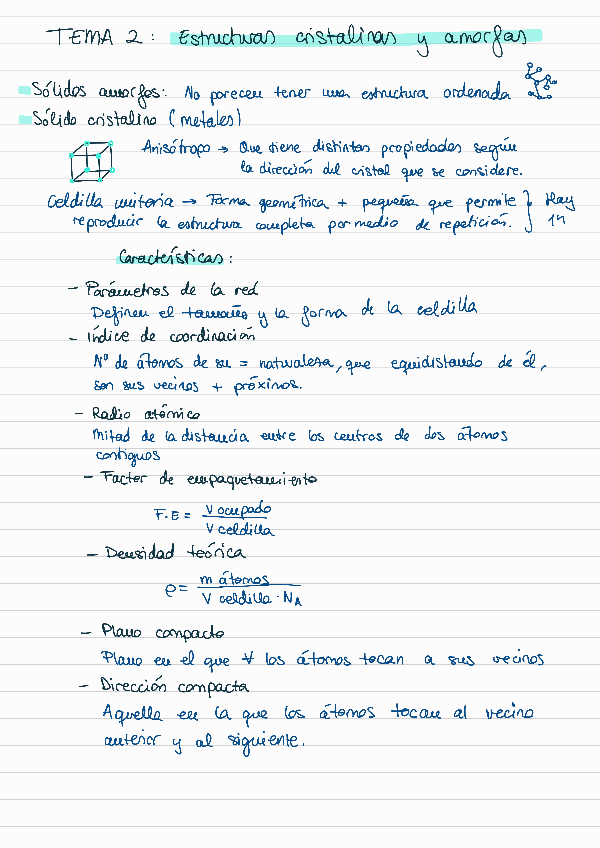 TEMA 2: Estructuras cristalinas y amorfas
Sólidos amorfos: No parecen tener una estructura ordenada
Sólido cristalino (metales)
Anisótropo → Que tiene distintas propiedades según
la dirección del cristal que se considere.
Celdilla unitaria → Forma geométrica + pequeña que permite
reproducir la estructura completa por medio de repetición.
Hay
14
Características:
- Parámetros de la red
Definen el tamaño y la forma de la celdilla
- Índice de coordinación
Nº de átomos de su = naturaleza, que equidistando de él,
son sus vecinos + próximos.
- Radio atómico
Mitad de la distancia entre los centros de dos átomos
contiguos
- Factor de empaquetamiento
F.E = V ocupado / V celdilla
- Densidad teórica
ρ = m átomos / V celdilla · NA
- Plano compacto
Plano en el que ∀ los átomos tocan a sus vecinos
- Dirección compacta
Aquella en la que los átomos tocan al vecino
anterior y al siguiente.